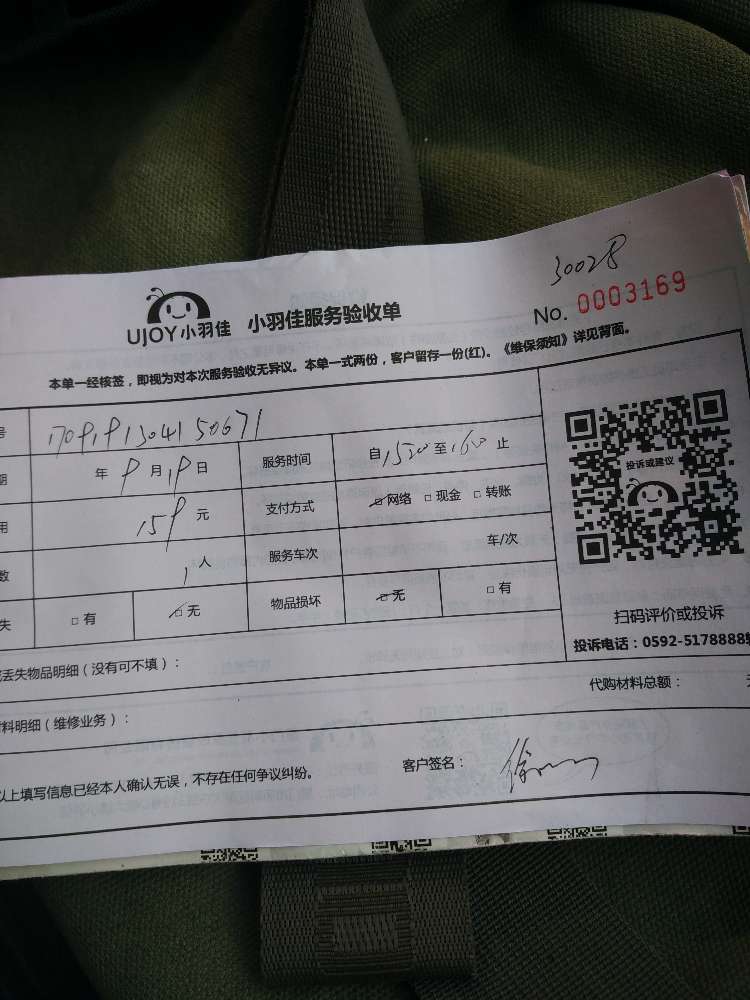 30028
UJOY小羽佳 小羽佳服务验收单 No. 0003169
本单一经核签，即视为对本次服务验收无异议。本单一式两份，客户留存一份(红)。《维保须知》详见背面。
号 1709191304150671
期 年 9 月 19 日 服务时间 自 1520 至 1620 止
用 159 元 支付方式 □网络 □现金 □转账
数 1 人 服务车次 车/次
失 □有 □无 物品损坏 □无 □有
投诉或建议
扫码评价或投诉
投诉电话：0592-5178888转
丢失物品明细（没有可不填）：
料明细（维修业务）： 代购材料总额： 元
以上填写信息已经本人确认无误，不存在任何争议纠纷。 客户签名：